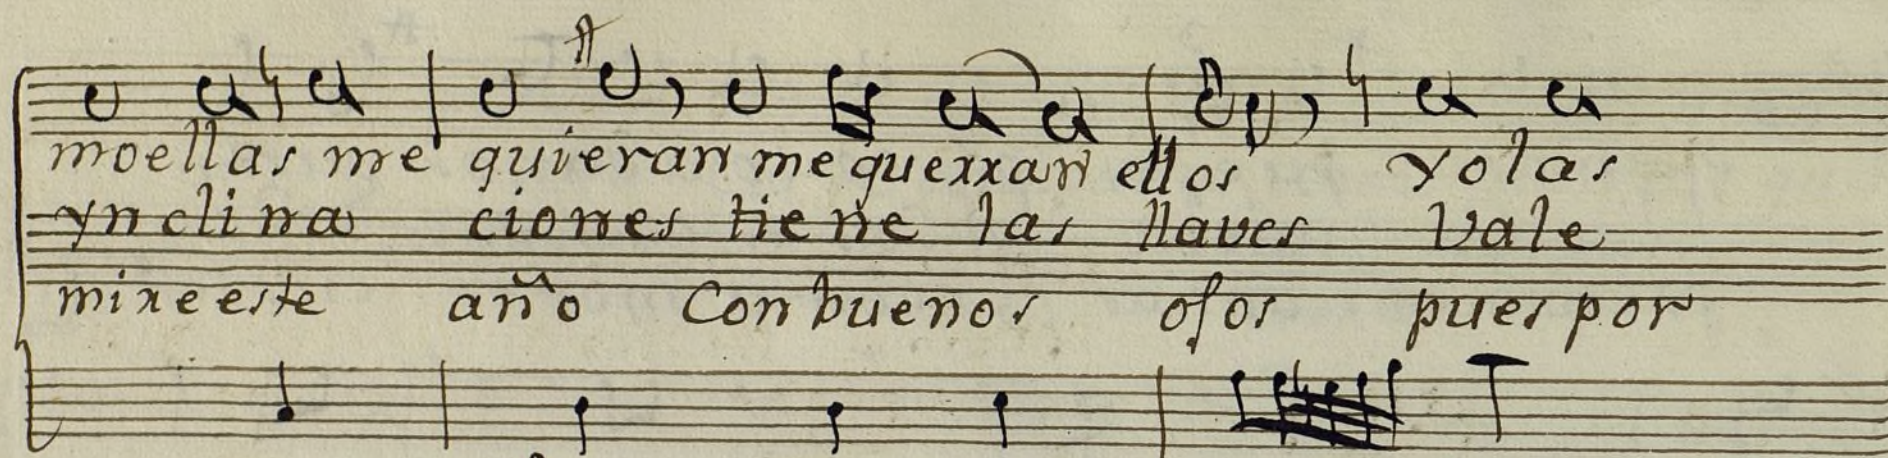 moellas me quieran me querran ellos yolas
ynclina ciones tiene las llaves vale
mire este año Con buenos ojos pues por